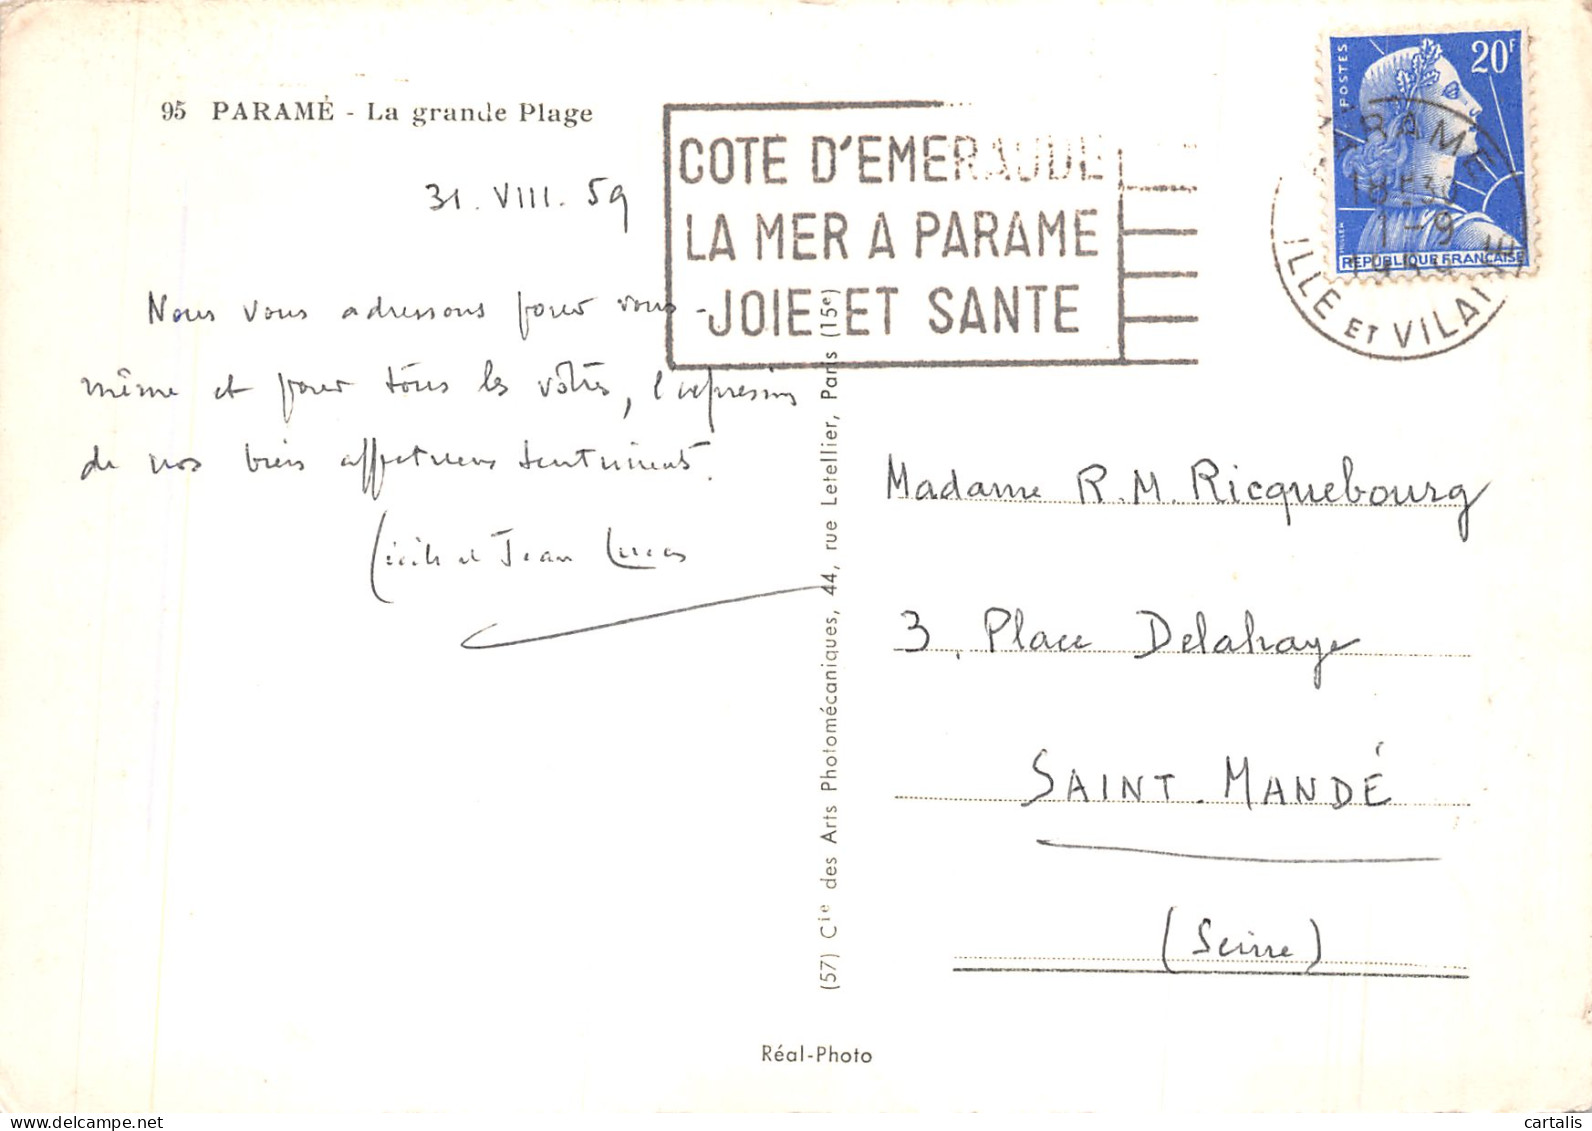 95 PARAMÉ - La grande Plage
31. VIII. 59
Nous vous adressons pour vous-
même et pour tous les vôtres, l'expression
de nos biens affectueux sentiments.
Cécile et Jean Lucas
COTE D'EMERAUDE
LA MER A PARAME
JOIE ET SANTE
POSTES
20F
MULLER
REPUBLIQUE FRANÇAISE
PARAME
18H30
1-9
1959
ILLE ET VILAINE
(57) Cie des Arts Photomécaniques, 44, rue Letellier, Paris (15e)
Madame R.M. Ricquebourg
3, Place Delahaye
SAINT. MANDÉ
(Seine)
Réal-Photo
delcampe.net
cartalis